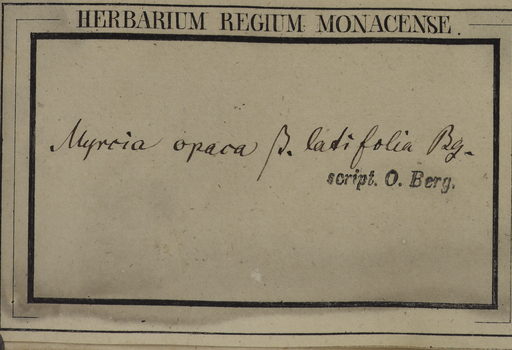 HERBARIUM REGIUM MONACENSE.
Myrcia opaca β. latifolia Bg.
script. O. Berg.